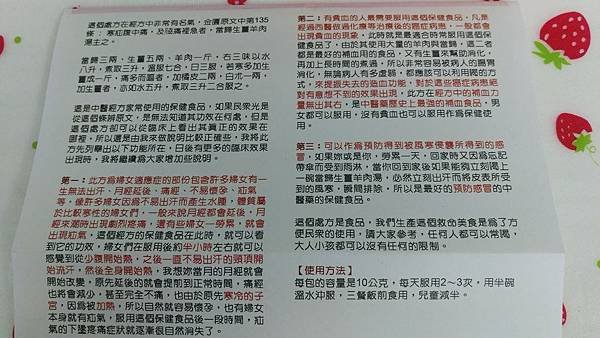 這個處方在經方中非常有名氣，金匱原文中第135
條：寒疝腹中痛，及脇痛裡急者，當歸生薑羊肉
湯主之。
當歸三兩、生薑五兩、羊肉一斤，右三味以水
八升，煮取三升，溫服七合，日三服，若寒多加生
薑成一斤，痛多而嘔者，加橘皮二兩，白朮一兩，
加生薑者，亦如水五升，煮取三升二合服之。
這是中醫經方家常使用的保健食品，如果民衆光是
從這個條辨原文，是無法知道其功效在何處，但是
這個處方卻可以從臨床上看出其真正的效果在
哪裡，所以還是由我來做說明比較正確些，我將此
方先列舉出以下功能所在，日後有更多的臨床效果
出現時，我將繼續為大家增加些說明。
第一：此方為婦女適應症的部份包含許多婦女有一
生無法出汗、月經延後、痛經、不易懷孕、疝氣
等，像許多婦女因為不易出汗而產生水腫，體質屬
於比較寒性的婦們，一般來說月經都會延後，月
經來潮時出現劇烈疼痛，還有些婦女一勞累，就會
出現疝氣，這個經方的保健食品在此時，就可以看
到它的功效，婦女們在服用後約半小時左右就可以
感覺到從少腹開始熱，之後一直不易出汗的頭頂開
始流汗，然後全身開始熱，我想妳當月的月經就會
開始改變，原先延後的就會提前到正常時間，痛經
也將會減少，甚至完全不痛，也由於原先寒冷的子
宮，因為被加熱，所以自然就容易懷孕，也有婦女
本身就有疝氣，服用這個保健食品後一段時間，疝
氣的下墜疼痛症狀就逐漸很自然消失了。
第二：有貧血的人最需要服用這個保健食品，凡是
經過西醫做過化療等治療後的癌症病患，一般都會
出現貧血的現象，此時就是最適合時常服用這個保
健食品了，由於其使用大量的羊肉與當歸，這二者
都是最好的補血用的食品，又有生薑來幫助消化，
再加上長時間的煮過，所以非常容易被病人的腸胃
消化，無論病人有多虛弱，都應該可以利用喝的方
式，來提振失去的造血功能，對於這些癌症病患絕
對有意想不到的效果出現，此方在經方中的補血力
量無出其右，是中醫藥歷史上最強的補血食品，男
女都可以服用，沒有貧血也可以服用作為保健使
用。
第三：可以作為預防得到被風寒侵襲所得到的感
冒，如果妳或是你，勞累一天，回家時又因為忘記
帶傘而受到雨淋，當你回到家後如果能夠立刻喝上
一碗當歸生薑羊肉湯，必然立刻出汗而將皮表所受
到的風寒，瞬間排除，所以是最好的預防感冒的中
醫藥的保健食品。
這個處方是食品，我們生產這個救命美食是為了方
便民衆的使用，請大家參考，任何人都可以常喝，
大人小孩都可以沒有任何的限制。
【使用方法】
每包的容量是10公克，每天服用2～3次，用半碗
溫水沖服，三餐飯前食用，兒童減半。